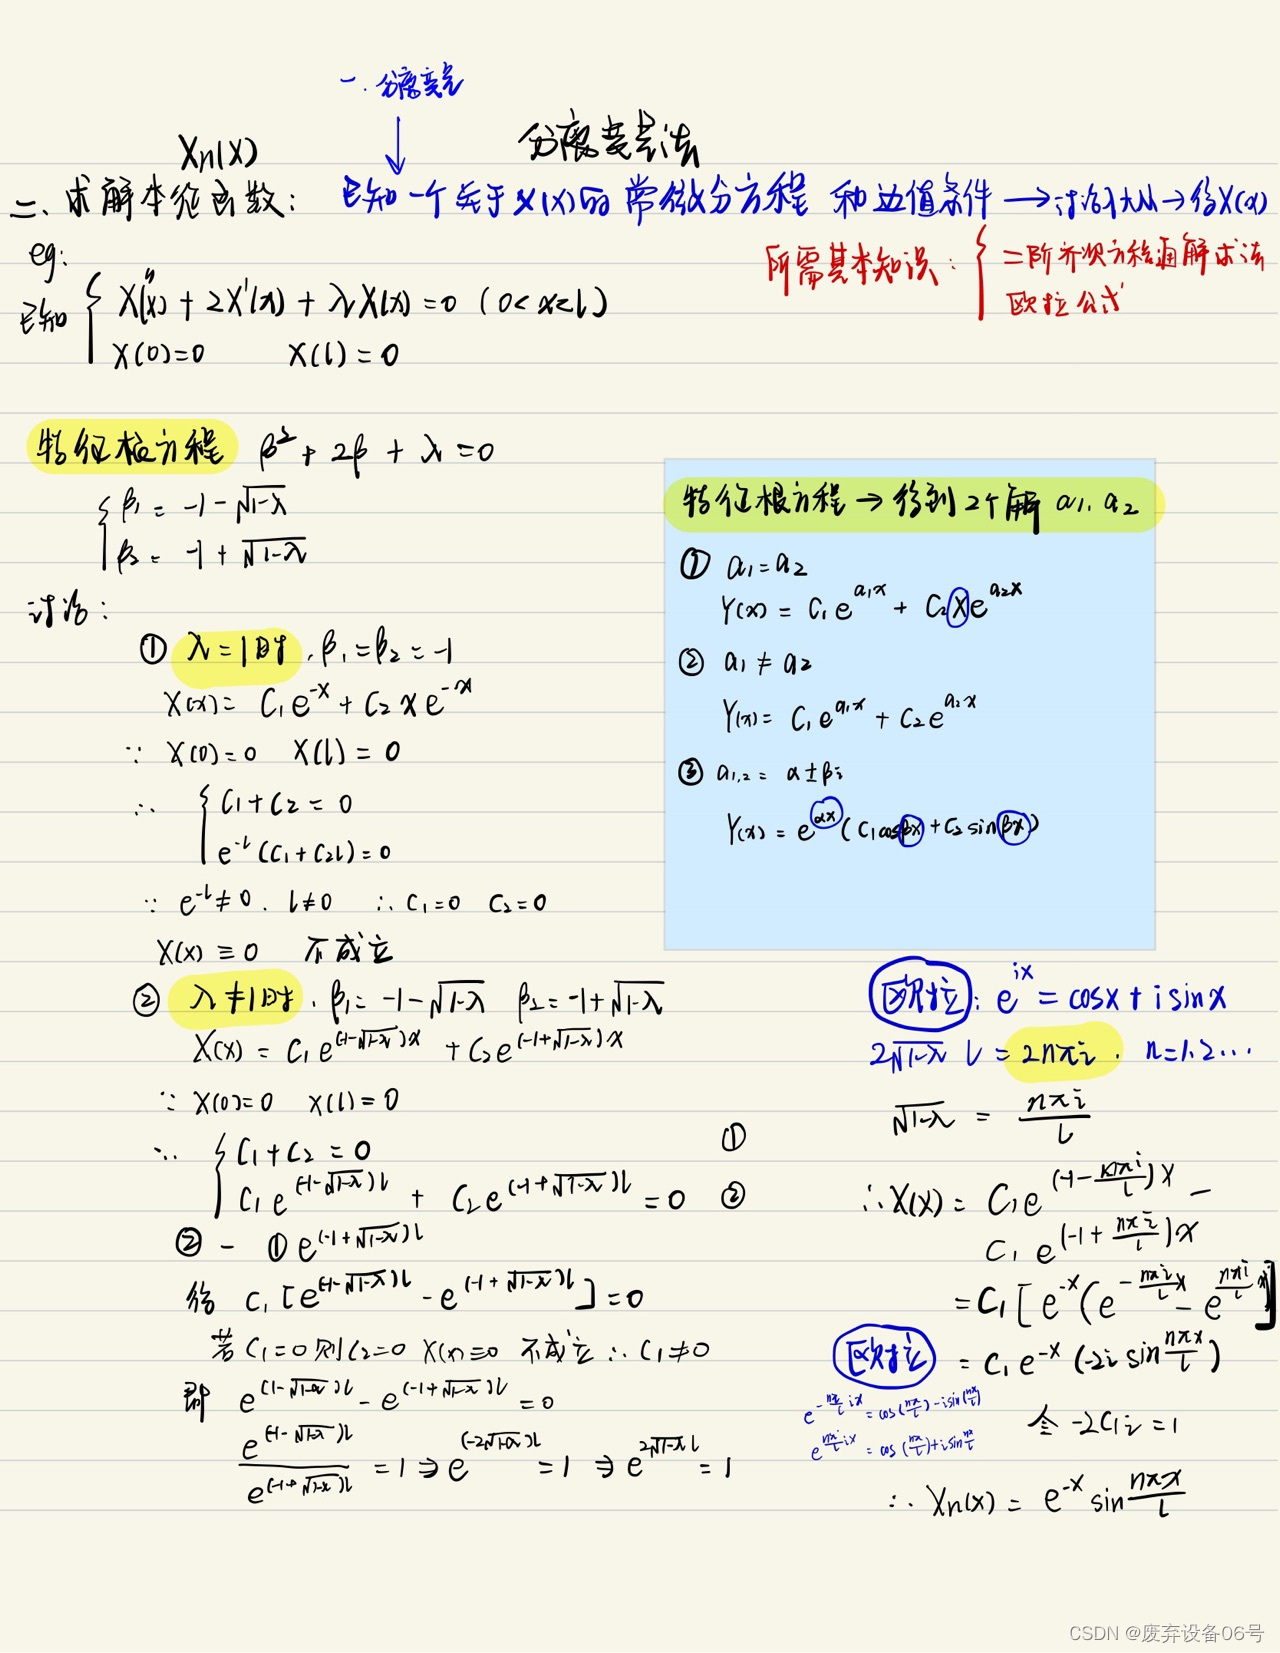 一.分离变量
分离变量法
Xn(x)
二、求解本征函数: 已知一个关于X(x)的常微分方程 和边值条件 → 讨论λ → 得X(x)
所需基本知识: { 二阶齐次方程通解求法
欧拉公式
eg:
已知 { X''(x) + 2X'(x) + λX(x) = 0 (0<x<l)
X(0)=0 X(l)=0
特征根方程 β² + 2β + λ = 0
{ β₁ = -1-√(1-λ)
β₂ = -1+√(1-λ)
讨论:
① λ=1时, β₁=β₂=-1
X(x) = C₁e^(-x) + C₂xe^(-x)
∵ X(0)=0 X(l)=0
∴ { C₁+C₂=0
e^(-l)(C₁+C₂l)=0
∵ e^(-l)≠0. l≠0 ∴ C₁=0 C₂=0
X(x)≡0 不成立
② λ≠1时, β₁=-1-√(1-λ) β₂=-1+√(1-λ)
X(x) = C₁e^((-1-√(1-λ))x) + C₂e^((-1+√(1-λ))x)
∵ X(0)=0 X(l)=0
∴ { C₁+C₂=0 ①
C₁e^((-1-√(1-λ))l) + C₂e^((-1+√(1-λ))l) = 0 ②
② - ①e^((-1+√(1-λ))l)
得 C₁[e^((-1-√(1-λ))l) - e^((-1+√(1-λ))l)] = 0
若C₁=0则C₂=0 X(x)≡0 不成立 ∴ C₁≠0
即 e^((-1-√(1-λ))l) - e^((-1+√(1-λ))l) = 0
e^((-1-√(1-λ))l) / e^((-1+√(1-λ))l) = 1 ⇒ e^((-2√(1-λ))l) = 1 ⇒ e^(2√(1-λ) l) = 1
特征根方程 → 得到2个解 a₁, a₂
① a₁=a₂
Y(x) = C₁e^(a₁x) + C₂xe^(a₂x)
② a₁≠a₂
Y(x) = C₁e^(a₁x) + C₂e^(a₂x)
③ a₁,₂ = α±βi
Y(x) = e^(αx)(C₁cosβx + C₂sinβx)
欧拉: e^(ix) = cosx + isinx
2√(1-λ) l = 2nπi. n=1.2...
√(1-λ) = nπi/l
∴ X(x) = C₁e^((-1-nπi/l)x) -
C₁e^((-1+nπi/l)x)
= C₁[e^(-x)(e^(-nπi/l x) - e^(nπi/l x)]
欧拉 = C₁e^(-x)(-2i sin nπx/l)
令 -2C₁i=1
∴ Xn(x) = e^(-x) sin nπx/l
CSDN @废弃设备06号